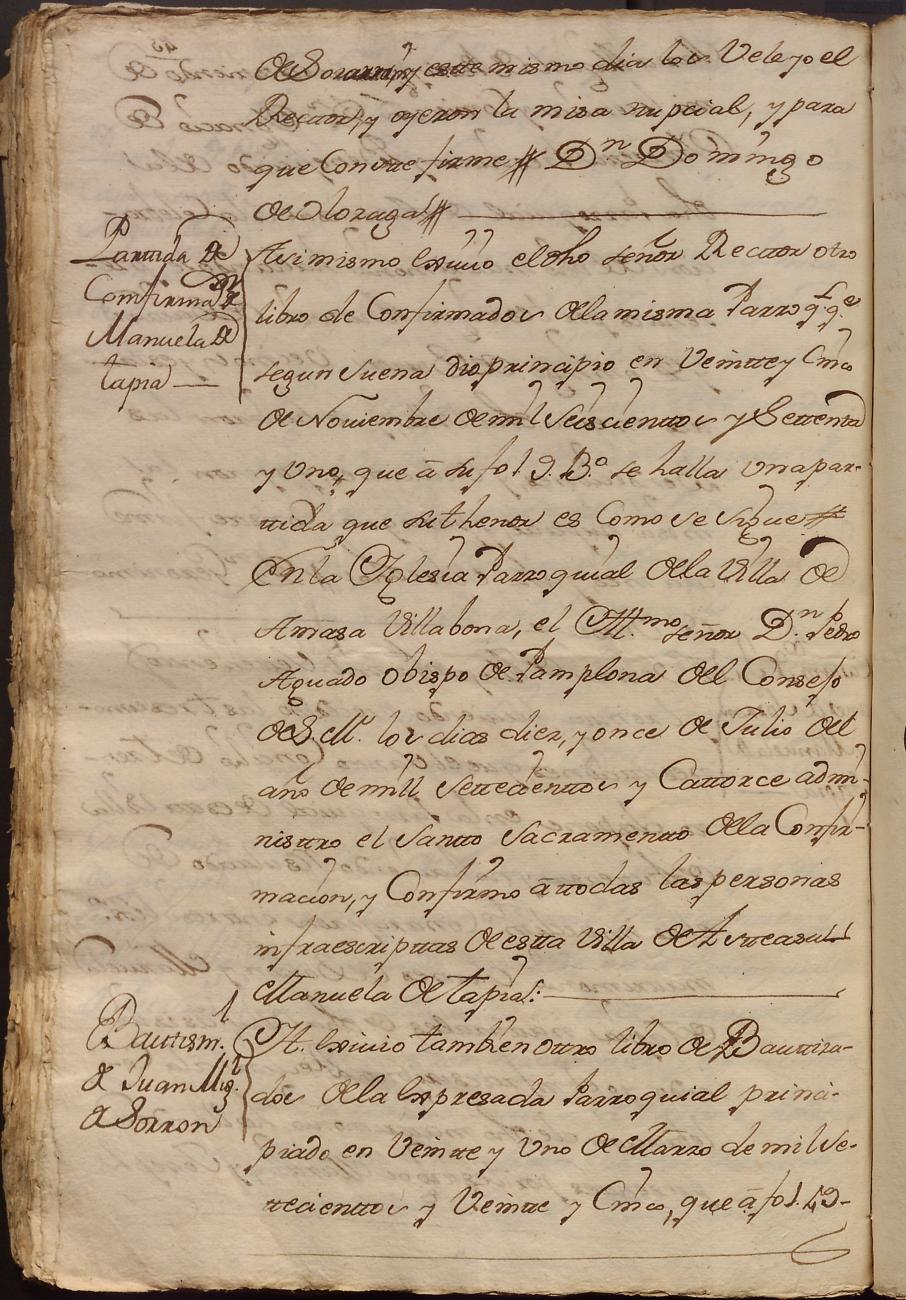 de Sorarrin, y este mismo dia los Vele yo el
Rector, y oyeron la misa nupcial, y para
que Conste firme // Dn Domingo
de Olozaga //
Partida de
Confirmaon
Manuela de
tapia
Asimismo exivio el dho señor Rector otro
libro de Confirmados de la misma Parroql qe
segun suena dio principio en Veintte y Cinco
de Noviembre de mil Seiscienttos y Settenta
y Uno, que â su fol 9. Bo. se halla una par-
tida que su thenor es Como se sigue //
En la Yglesia Parroquial de la Villa de
Amasa Villabona, el Illmo señor Dn Pedro
Aguado obispo de Pamplona del Consejo
de S. M. los dias diez, y once de Julio del
año de mill Settecienttos y Cattorce admi-
nisttro el Santto Sacramentto de la Confir-
macion, y Confirmo â ttodas las personas
infraescripttas de estta Villa de Astteasu //
Manuela de tapia:
Bauttism.
de Juan Migl.
de Sorron
Yt. exivio tambien ottro libro de Bauttiza-
dos de la expresada Parroquial princi-
piado en Veintte y Uno de Marzo de mil Se-
ttecienttos y Veintte y Cinco, que â fol. 59-